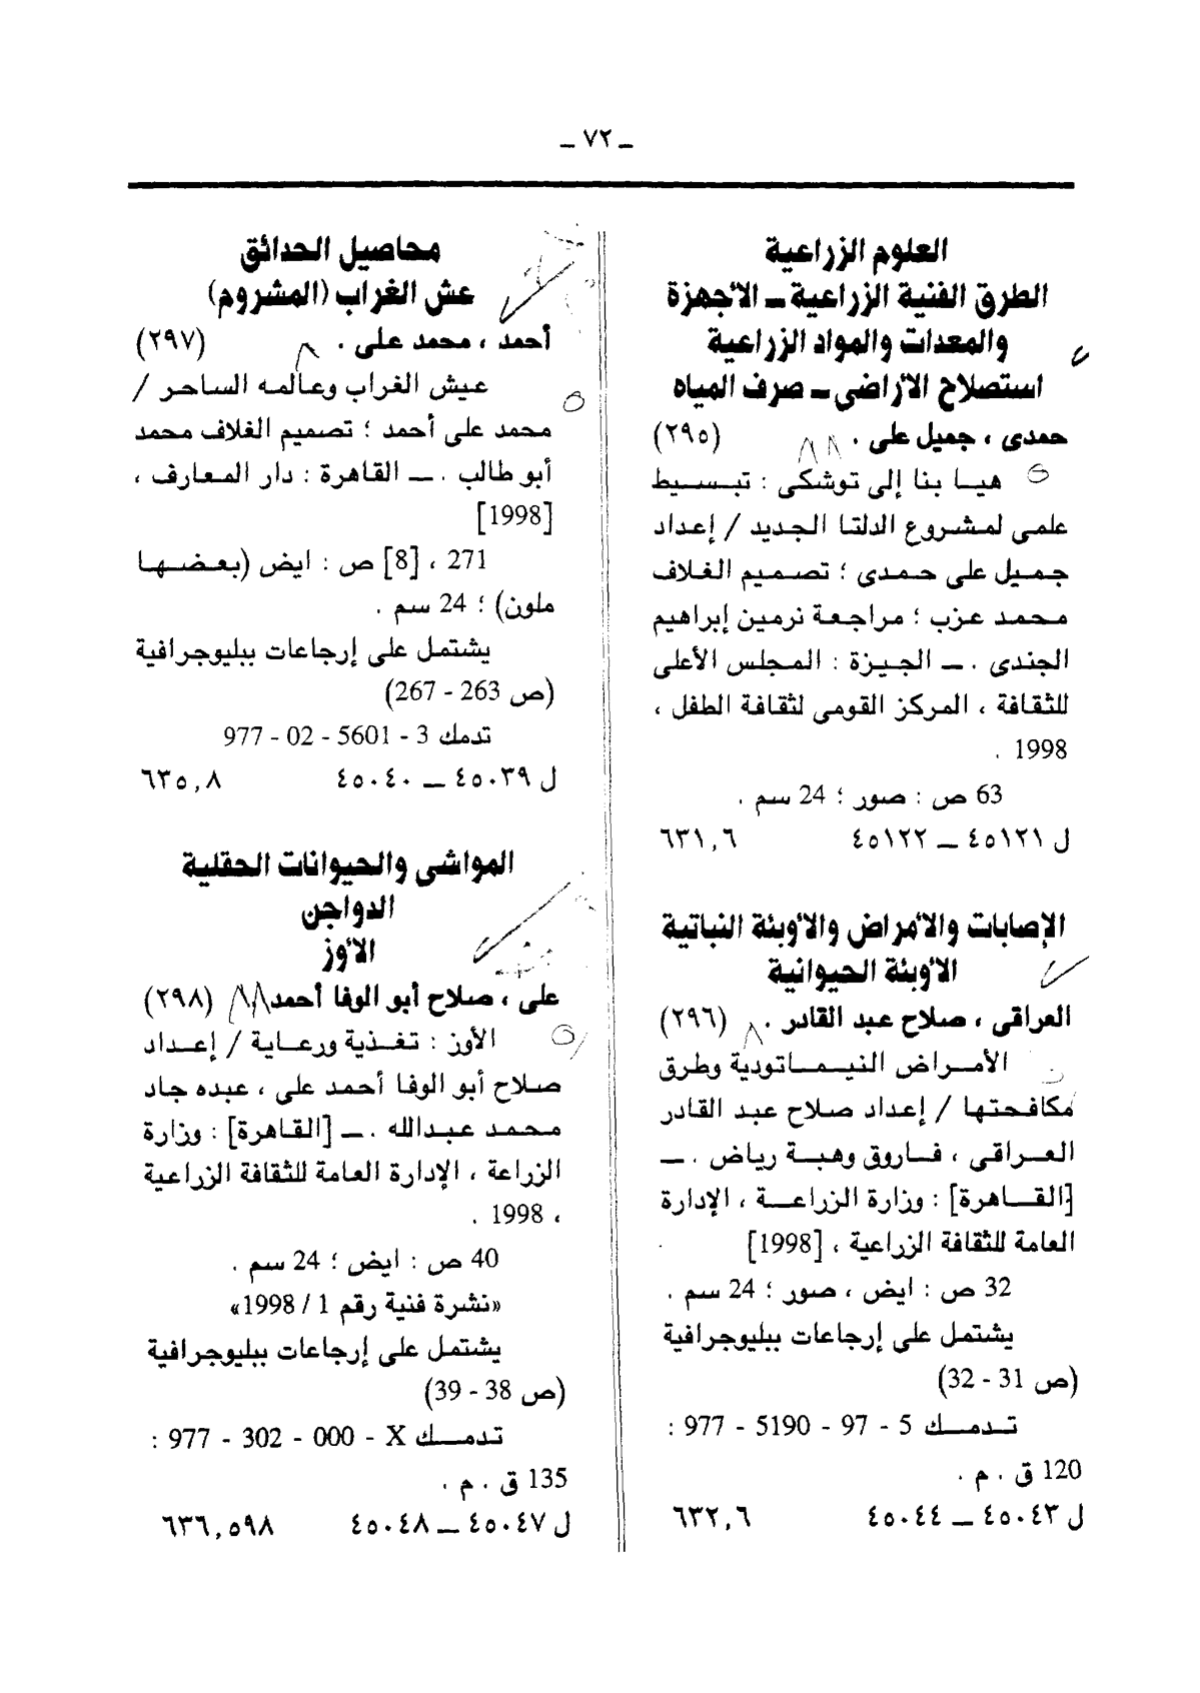 ـ ٧٢ ـ
العلوم الزراعية
الطرق الفنية الزراعية ـ الأجهزة
والمعدات والمواد الزراعية
استصلاح الأراضى ـ صرف المياه
حمدى ، جميل على . (٢٩٥)
هيا بنا إلى توشكى : تبسيط
علمى لمشروع الدلتا الجديد / إعداد
جميل على حمدى ؛ تصميم الغلاف
محمد عزب ؛ مراجعة نرمين إبراهيم
الجندى . ـ الجيزة : المجلس الأعلى
للثقافة ، المركز القومى لثقافة الطفل ،
1998 .
63 ص : صور ؛ 24 سم .
ل ٤٥١٢١ ـ ٤٥١٢٢ ٦٣١,٦
الإصابات والأمراض والأوبئة النباتية
الأوبئة الحيوانية
العراقى ، صلاح عبد القادر . (٢٩٦)
الأمراض النيماتودية وطرق
مكافحتها / إعداد صلاح عبد القادر
العراقى ، فاروق وهبة رياض . ـ
[القاهرة] : وزارة الزراعة ، الإدارة
العامة للثقافة الزراعية ، [1998]
32 ص : ايض ، صور ؛ 24 سم .
يشتمل على إرجاعات ببليوجرافية
(ص 31 - 32)
تدمك 5 - 97 - 5190 - 977 :
120 ق . م .
ل ٤٥٠٤٣ ـ ٤٥٠٤٤ ٦٣٢,٦
محاصيل الحدائق
عش الغراب (المشروم)
أحمد ، محمد على . (٢٩٧)
عيش الغراب وعالمه الساحر /
محمد على أحمد ؛ تصميم الغلاف محمد
أبو طالب . ـ القاهرة : دار المعارف ،
[1998]
271 ، [8] ص : ايض (بعضها
ملون) ؛ 24 سم .
يشتمل على إرجاعات ببليوجرافية
(ص 263 - 267)
تدمك 3 - 5601 - 02 - 977
ل ٤٥٠٣٩ ـ ٤٥٠٤٠ ٦٣٥,٨
المواشى والحيوانات الحقلية
الدواجن
الأوز
على ، صلاح أبو الوفا أحمد (٢٩٨)
الأوز : تغذية ورعاية / إعداد
صلاح أبو الوفا أحمد على ، عبده جاد
محمد عبدالله . ـ [القاهرة] : وزارة
الزراعة ، الإدارة العامة للثقافة الزراعية
، 1998 .
40 ص : ايض ؛ 24 سم .
«نشرة فنية رقم 1 / 1998»
يشتمل على إرجاعات ببليوجرافية
(ص 38 - 39)
تدمك X - 000 - 302 - 977 :
135 ق . م .
ل ٤٥٠٤٧ ـ ٤٥٠٤٨ ٦٣٦,٥٩٨